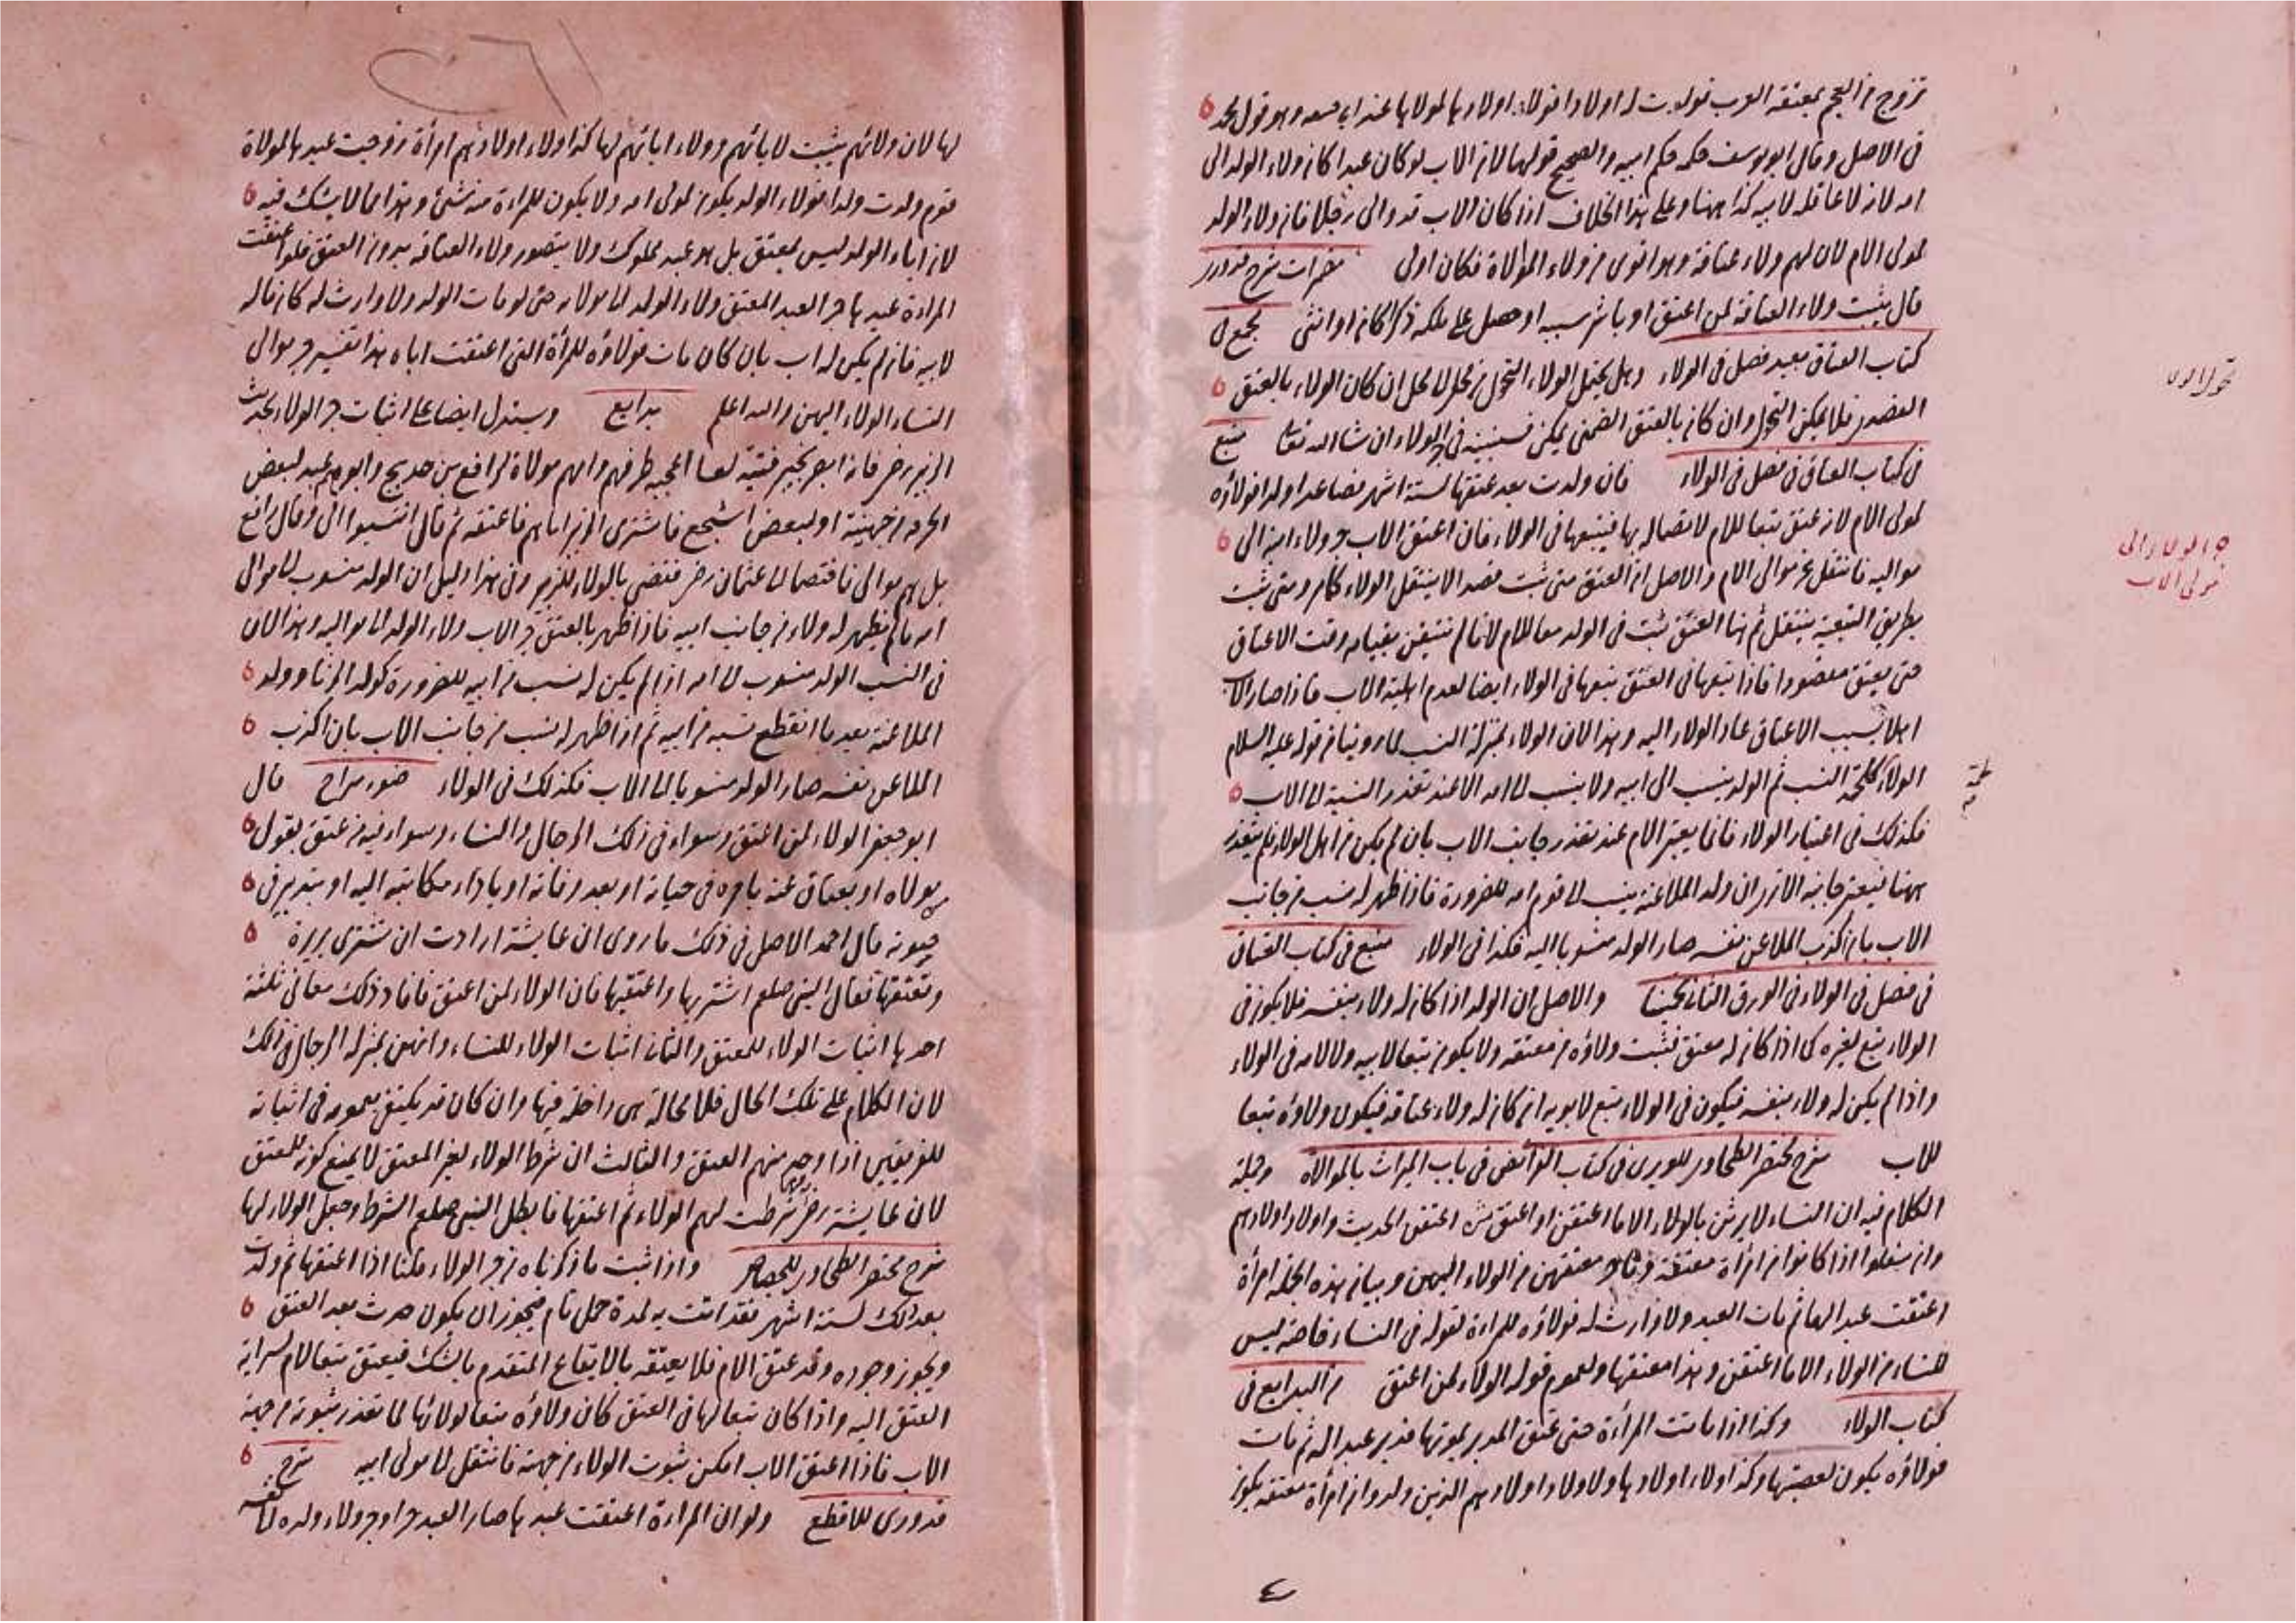 تزوج من العجم بمعتقة العرب فولدت له اولادا فولاء اولادها لمولاها عند ابى حنيفه وهو قول محمد
فى الاصل وقال ابو يوسف حكمه حكم ابيه والصحيح قولهما لان الاب لو كان عبدا كان ولاء الولد الى
امه لانه لا عاقلة لابيه كذا ههنا وعلى هذا الخلاف اذا كان الاب قد والى رجلا فان ولاء الولد
لمولى الام لان لهم ولاء عتاقة وهو اقوى من ولاء الموالاة فكان اولى مضمرات شرح قدورى
قال يثبت ولاء العتاقة لمن اعتق او باشر سببه او حصل على ملكه ذكرا كان او انثى مجمع فى
كتاب العتاق بعيد فصل فى الولاء وهل يحتمل الولاء التحول من محل الى محل ان كان الولاء بالعتق
القصدى فلا يمكن التحول وان كان بالعتق الضمنى يمكن فسنبينه فى جر الولاء ان شاء الله تعالى منبع
فى كتاب العتاق فى فصل فى الولاء فان ولدت بعد عتقها لستة اشهر فصاعدا ولدا فولاؤه
لمولى الام لانه عتق تبعا للام لاتصاله بها فيتبعها فى الولاء فان اعتق الاب جر ولاء ابنه الى
مواليه فانتقل عن موالى الام والاصل ان العتق متى ثبت قصدا لا ينتقل الولاء كما مر ومتى ثبت
بطريق التبعية ينتقل ثم هنا العتق ثبت فى الولد معا للام لانا لم نتيقن بقيامه وقت الاعتاق
حتى يعتق مقصودا فاذا تبعها فى العتق تبعها فى الولاء ايضا لعدم اهلية الاب فاذا صار الاب
اهلا بسبب الاعتاق عاد الولاء اليه وهذا لان الولاء بمنزلة النسب لما روينا من قوله عليه السلام
الولاء كلحمة النسب ثم الولد ينسب الى ابيه ولا ينسب الى امه الا عند تعذر النسبة الى الاب
فكذلك فى اعتبار الولاء فانما يعتبر الام عند تعذر جانب الاب بان لم يكن من اهل الولاء فلم يتعذر
ههنا فيعتبر جانبه الا ترى ان ولد الملاعنة ينسب الى قوم امه للضرورة فاذا ظهر له نسب من جانب
الاب بان اكذب الملاعن نفسه صار الولد منسوبا اليه فكذا فى الولاء منبع فى كتاب العتاق
فى فصل فى الولاء فى الورق الثانى تخمينا والاصل ان الولد اذا كان له ولاء بنفسه فلا يكون فى
الولاء تبع لغيره كما اذا كان له معتق فثبت ولاؤه من معتقه ولا يكون تبعا لابيه ولا لامه فى الولاء
واذا لم يكن له ولاء بنفسه فيكون فى الولاء تبع لابويه ان كان له ولاء عتاقة فيكون ولاؤه تبعا
للاب شرح مختصر الطحاوى للوبرى فى كتاب الفرائض فى باب الميراث بالموالاة وجملة
الكلام فيه ان النساء لا يرثن بالولاء الا ما اعتقن او اعتق من اعتقن الحديث واولاد اولادهم
وان سفلوا اذا كانوا من امرأة معتقة وما جر معتقهن من الولاء اليهن وبيان هذه الجملة امرأة
اعتقت عبدا لها ثم مات العبد ولا وارث له فولاؤه للمراءة لقوله فى النساء خاصة ليس
للنساء من الولاء الا ما اعتقن وهذا معتقها ولعموم قوله الولاء لمن اعتق من البدايع فى
كتاب الولاء وكذا اذا ماتت المرأة حتى عتق المدبر بموتها فدبر عبدا له ثم مات
فولاؤه يكون لعصبتها وكذا ولاء اولادها ولاولاد اولادهم الذين ولدوا من امرأة معتقة يكون
تحول الولاء
جر الولاء الى
مولى الاب
لها لان ولائهم يثبت لابائهم وولاء ابائهم لها كذا ولاء اولادهم امرأة زوجت عبدها لمولاة
قوم ولدت ولدا فولاء الولد يكون لمولى امه ولا يكون للمراءة منه شئ وهذا مما لا يشك فيه
لان اباء الولد ليس بمعتق بل هو عبد مملوك ولا يتصور ولاء العتاقة بدون العتق فلو اعتقت
المراءة عبدها جر العبد المعتق ولاء الولد الى مولاته حتى لو مات الولد ولا وارث له كان ماله
لابيه فان لم يكن له اب بان كان مات فولاؤه للمرأة التى اعتقت اباه هذا تفسير جر موالى
النساء الولاء اليهن والله اعلم بدايع ويستدل ايضا على اثبات جر الولاء بحديث
الزبير رض فانه ابصر بخيبر فتية لعسا اعجبه ظرفهم وامهم مولاة لرافع بن خديج وابوهم عبد لبعض
الحرقة من جهينة او لبعض اشجع فاشترى الزبير اباهم فاعتقه ثم قال انتسبوا الى وقال رافع
بل هم موالى فاختصما الى عثمان رض فقضى بالولاء للزبير وفى هذا دليل ان الولد منسوب الى موالى
امه ما لم يظهر له ولاء من جانب ابيه فاذا ظهر بالعتق جر الاب ولاء الولد الى مواليه وهذا لان
فى النسب الولد منسوب الى امه اذا لم يكن له نسب من ابيه للضرورة كولد الزنا وولد
الملاعنة بعد ما انقطع نسبه من ابيه ثم اذا ظهر له نسب من جانب الاب بان اكذب
الملاعن نفسه صار الولد منسوبا الى الاب فكذلك فى الولاء ضوء سراج قال
ابو جعفر الولاء لمن اعتق وسواء فى ذلك الرجال والنساء وسواء فيه من عتق بقول
مولاه او بعتاق عنه بامره فى حياته او بعد وفاته او باداء مكاتبته اليه او بتدبير فى
حيوته قال احمد الاصل فى ذلك ما روى ان عايشة ارادت ان تشترى بريرة
وتعتقها فقال النبى صلعم اشتريها واعتقيها فان الولاء لمن اعتق فافاد ذلك معانى ثلثة
احدها اثبات الولاء للمعتق والثانى اثبات الولاء للنساء وانهن بمنزلة الرجال فى ذلك
لان الكلام على تلك الحال فلا محالة هى داخلة فيها وان كان قد يكتفى بعمومه فى اثباته
للفريقين اذا وجد منهم العتق والثالث ان شرط الولاء لغير المعتق لا يمنع كونه للمعتق
لان عايشة رض شرطت لهم الولاء ثم اعتقها فابطل النبى صلعم الشرط وجعل الولاء لها
شرح مختصر الطحاوى للجصاص واذا ثبت ما ذكرناه من جر الولاء قلنا اذا اعتقها ثم ولدت
بعد ذلك لستة اشهر فقد اتت به لمدة حمل تام فيجوز ان يكون حدث بعد العتق
ويجوز وجوده وقد عتق الام فلا يعتقه بالايقاع المتقدم بالشك فيعتق تبعا للام لسراية
العتق اليه واذا كان تبعا لها فى العتق كان ولاؤه تبعا لولائها لما تعذر ثبوته من جهة
الاب فاذا اعتق الاب امكن ثبوت الولاء من جهته فانتقل الى مولى ابيه شرح
قدورى للاقطع ولو ان المراءة اعتقت عبدها صار العبد حرا وجر ولاء ولده الى نفسه